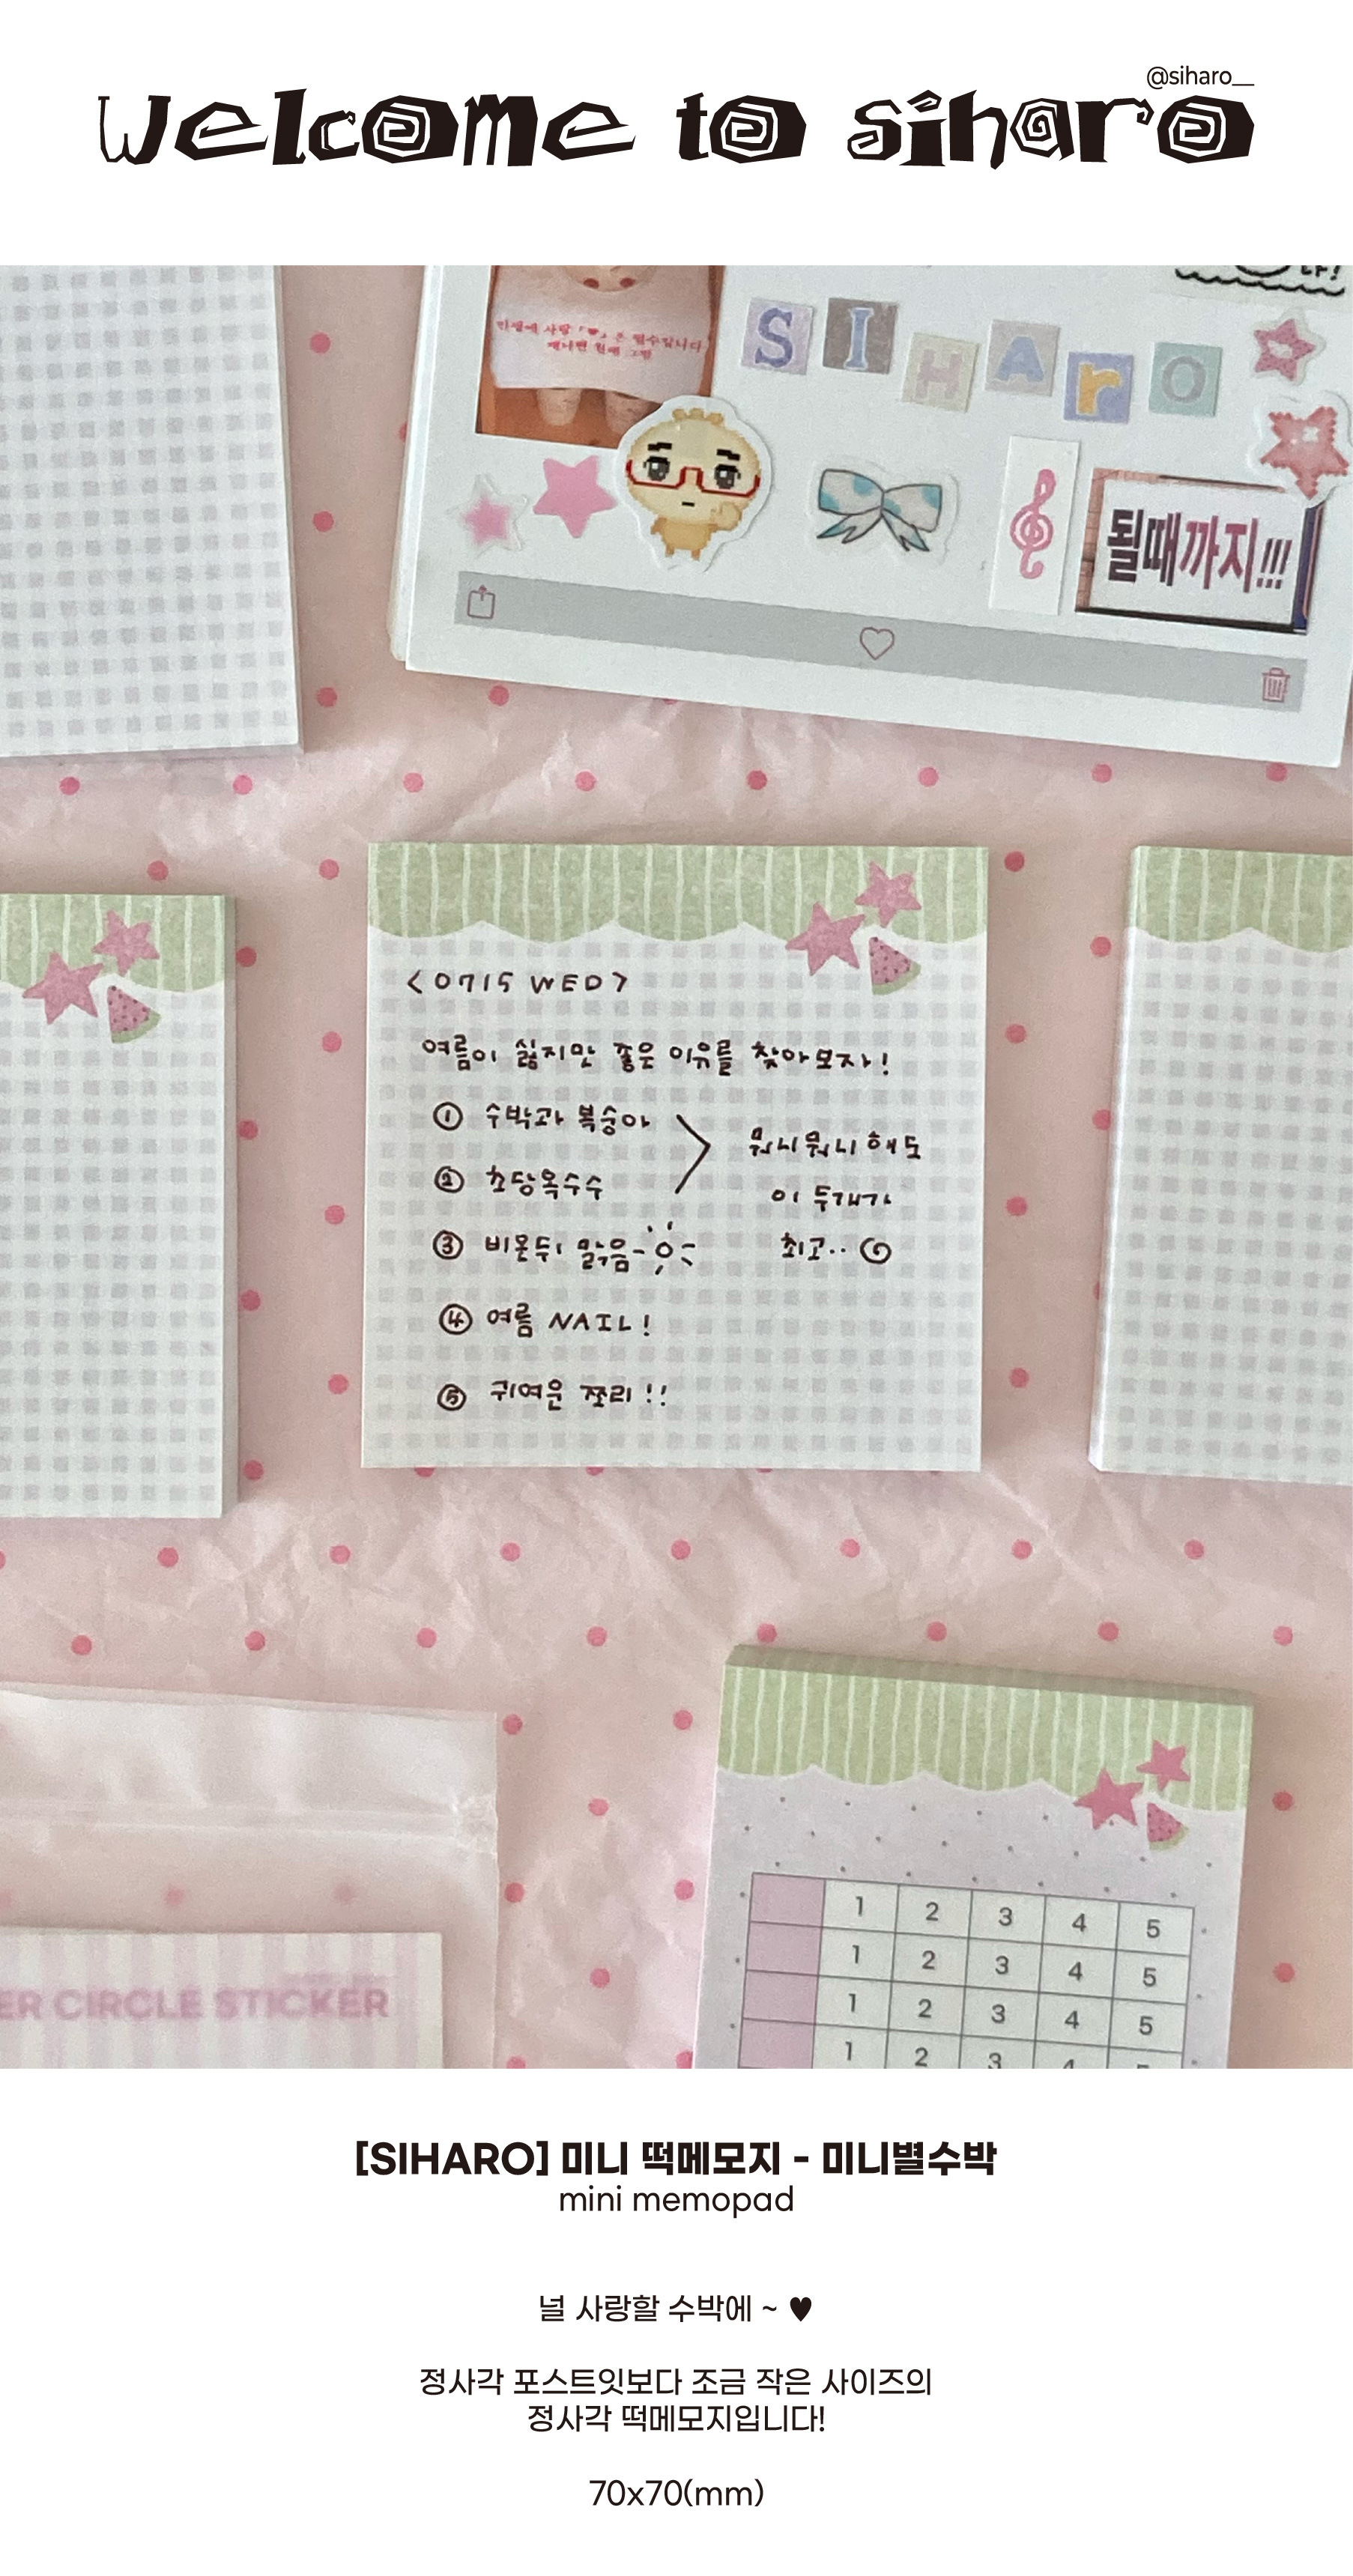 @siharo__
Welcome to siharo
SIHArO
될때까지!!!
<0715 WED>
여름이 싫지만 좋은 이유를 찾아보자!
① 수박과 복숭아
② 초당옥수수
뭐니뭐니해도
이 두개가
최고..
③ 비온뒤 맑음
④ 여름 NAIL!
⑤ 귀여운 쪼리!!
1 2 3 4 5
1 2 3 4 5
1 2 3 4 5
1 2 3 4 5
ER CIRCLE STICKER
[SIHARO] 미니 떡메모지 - 미니별수박
mini memopad
널 사랑할 수박에 ~ ♥
정사각 포스트잇보다 조금 작은 사이즈의
정사각 떡메모지입니다!
70x70(mm)